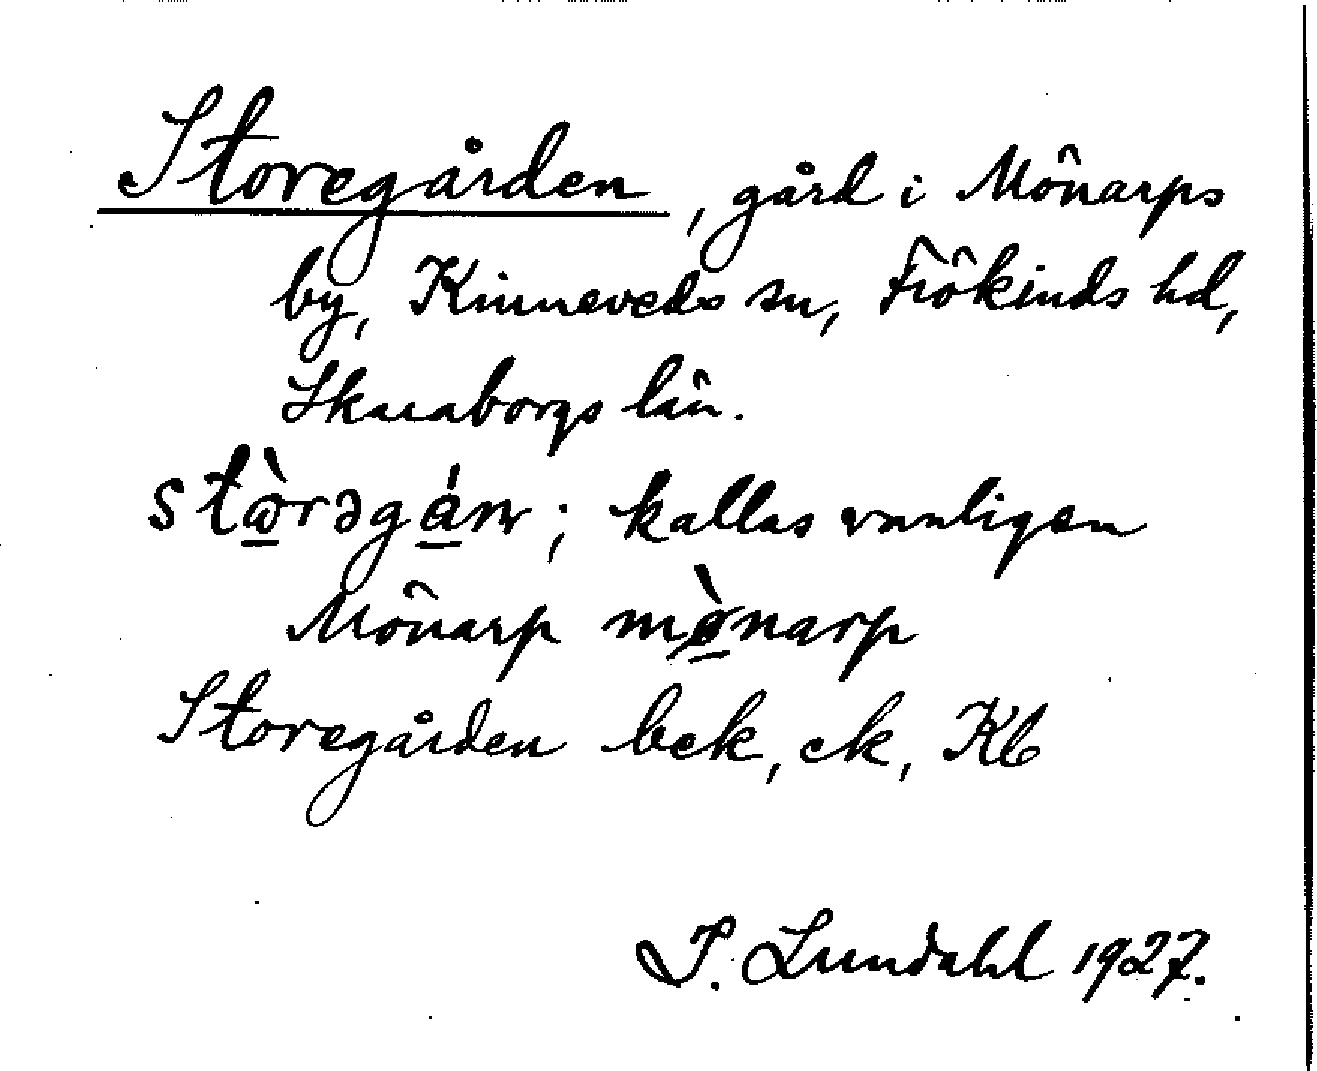 Storegården, gård i Mönarps
by, Kinneveds sn, Frökinds hd,
Skaraborgs län.
stòrəgán; kallas vanligen
Mönarp mø̀narp
Storegården bek, ek, Kb
I. Lundahl 1927.